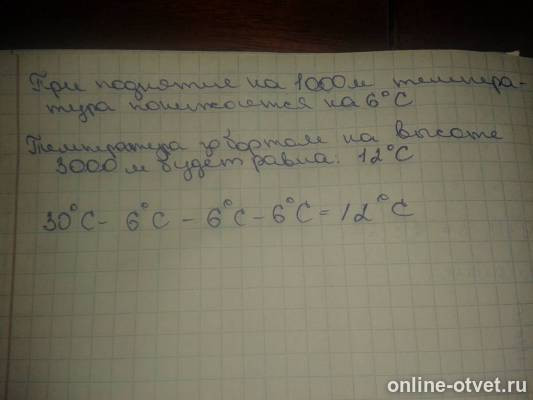 При поднятие на 1000м темпера-
тура понижается на 6°С
Температура за бортом на высоте
3000 м будет равна: 12°С
30°С - 6°С - 6°С - 6°С = 12°С
online-otvet.ru